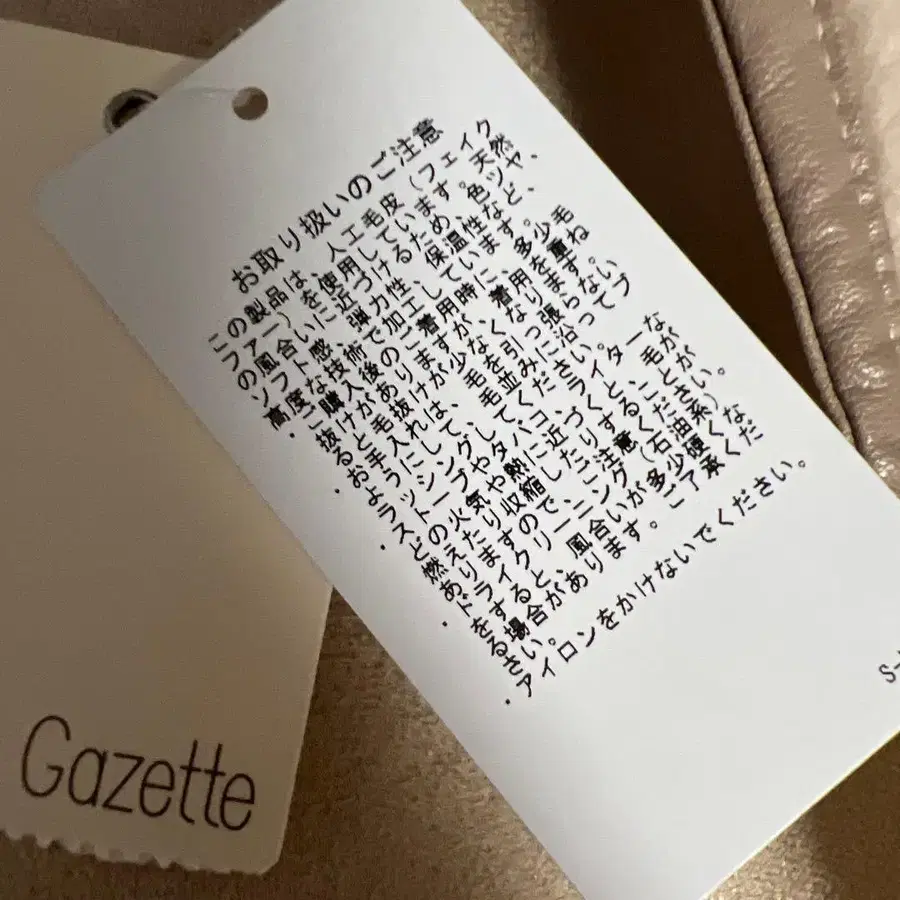 お取り扱いのご注意
この製品は、人工毛皮（フェイク
ファー）を使用しています。天然
の風合いに近づけるため、色ツヤ、
ソフト感、弾力性、保温性など、
高度な技術で加工しています。
・ご購入後のご着用時に、多少毛
抜けがありますが、着用を重ね
ると毛抜けが少なくなります。
・お手入れは、毛を引っ張らない
ようにして、毛並みに沿ってブ
ラッシングしてください。
・ストーブやタバコ、ライターな
どの火気や熱に近づくと、毛が
燃えたり収縮したりすることが
ありますので、ご注意ください。
・ドライクリーニング（石油系）
をすると、風合いが多少硬くな
る場合があります。ご了承くだ
さい。
・アイロンをかけないでください。
S-
Gazette